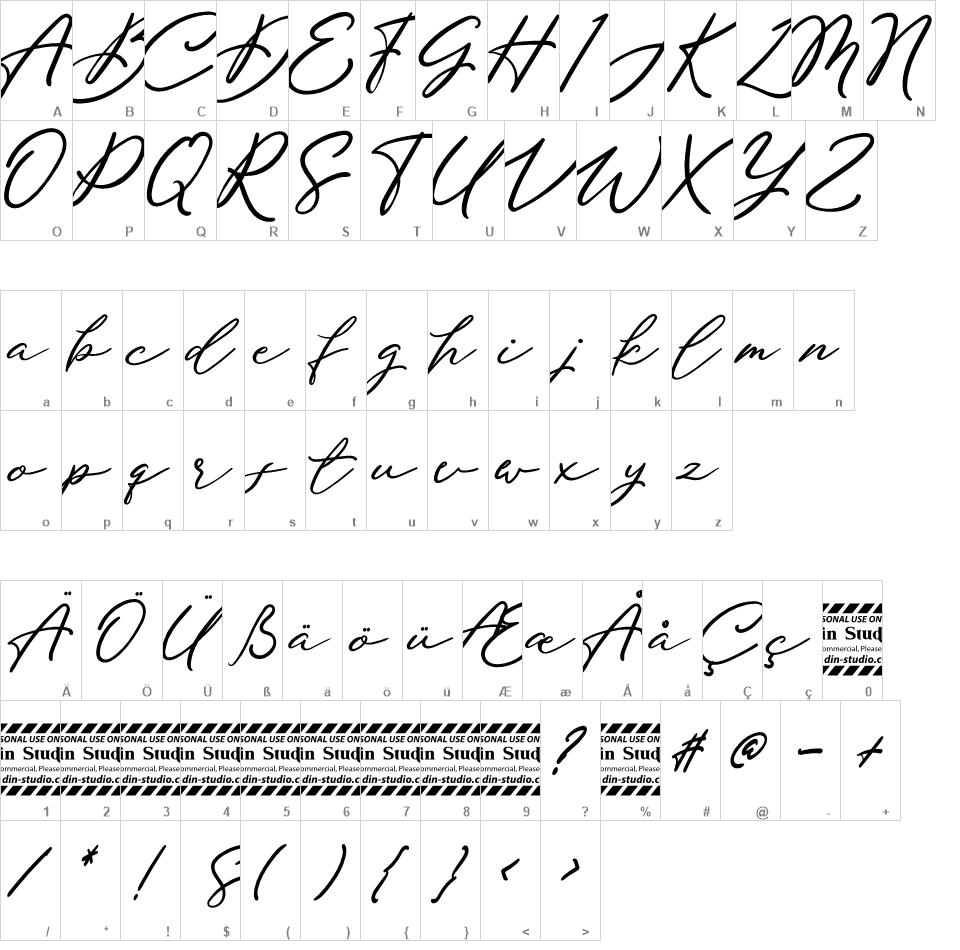 A B C D E F G H I J K L M N
A B C D E F G H I J K L M N
O P Q R S T U V W X Y Z
O P Q R S T U V W X Y Z
a b c d e f g h i j k l m n
a b c d e f g h i j k l m n
o p q r s t u v w x y z
o p q r s t u v w x y z
Ä Ö Ü ß ä ö ü Æ æ Å å Ç ç
SONAL USE ON
in Stud
ommercial, Please
din-studio.c
Ä Ö Ü ß ä ö ü Æ æ Å å Ç ç 0
SONAL USE ON SONAL USE ON SONAL USE ON SONAL USE ON SONAL USE ON SONAL USE ON SONAL USE ON SONAL USE ON SONAL USE ON ? SONAL USE ON # @ - +
in Stud in Stud in Stud in Stud in Stud in Stud in Stud in Stud in Stud in Stud
ommercial, Please ommercial, Please ommercial, Please ommercial, Please ommercial, Please ommercial, Please ommercial, Please ommercial, Please ommercial, Please ommercial, Please
din-studio.c din-studio.c din-studio.c din-studio.c din-studio.c din-studio.c din-studio.c din-studio.c din-studio.c din-studio.c
1 2 3 4 5 6 7 8 9 ? % # @ - +
/ * ! $ ( ) { } < >
/ * ! $ ( ) { } < >